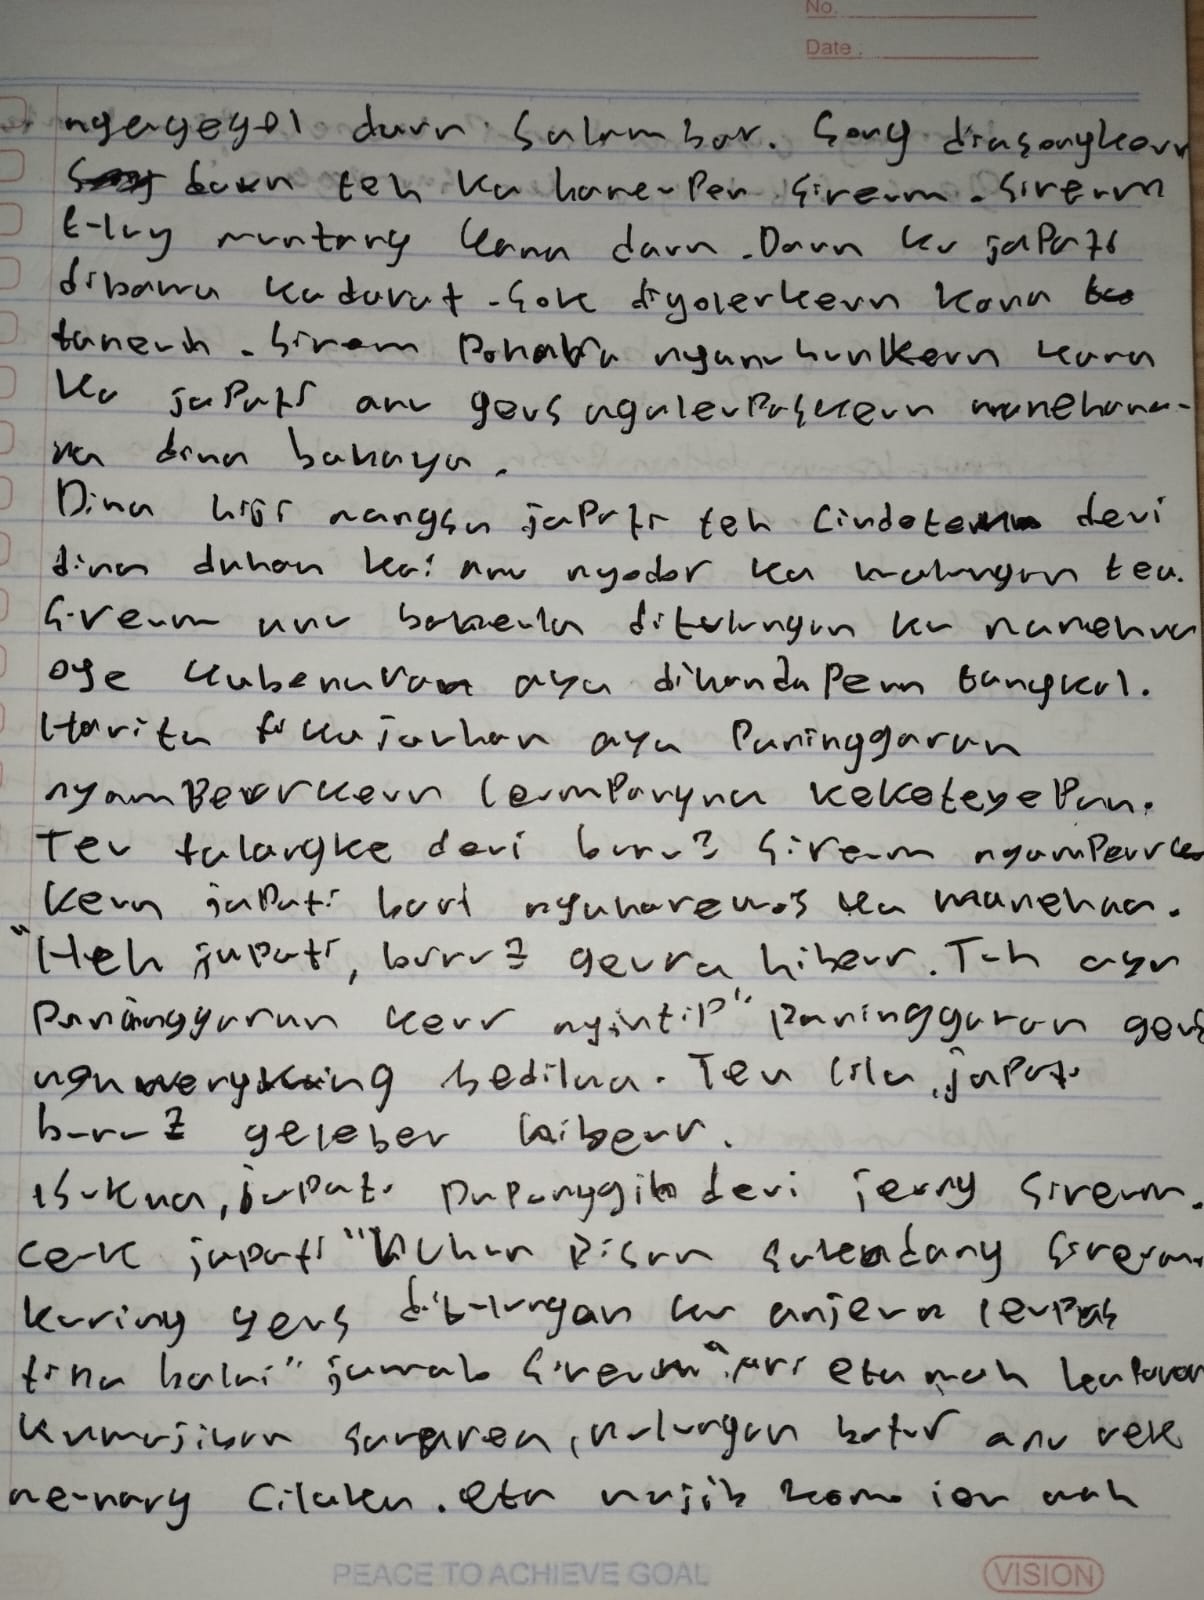 No.
Date :
ngegegel daun salambar. Song diasongkeun
daun teh ka hareupeun sireum. Sireum
tuluy muntang kana daun. Daun ku japati
dibawa ka darat. Sok digolerkeun kana
taneuh. Sireum pohara nganuhunkeun kana
ka japati anu geus ngaleupaskeun manehana-
na dina bahaya.
Dina hiji mangsa japati teh cindeten deui
dina dahan kai anu nyodor ka walungan tea.
Sireum anu baheula ditulungan ku manehna
oge kabeneran aya dihandapeun tangkal.
Harita ti kajauhan aya paninggaran
nyampeurkeun leumpangna keketeyepan.
Teu talangke deui buru2 sireum nyampeur
keun japati bari ngaharewos ka manehna.
"Heh japati, buru2 geura hibeur. Tuh aya
paninggaran keur ngintip" paninggaran geus
ngaweryking bedilna. Teu lila, japati
buru2 geleber hibeur.
isukna, japati papanggih deui jeung sireum.
Cek japati "Nuhun pisan salendang sireum
kuring geus ditulungan ku anjeun leupas
tina balai" jawab sireum "ari eta mah
kawajiban sarerea, nulungan batur anu rek
meunang cilaka. eta wajib mah
PEACE TO ACHIEVE GOAL
VISION